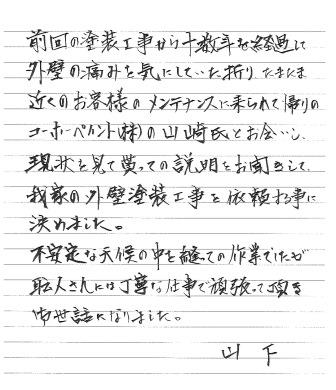 前回の塗装工事から十数年を経過して
外壁の痛みを気にしていた折り、たまたま
近くのお客様のメンテナンスに来られて帰りの
コーホーペイント(株)の山崎氏とお会いし、
現状を見て貰っての説明をお聞きして、
我家の外壁塗装工事を依頼する事に
決めました。
不安定な天候の中を縫っての作業でしたが
職人さんには丁寧な仕事で頑張って頂き
御世話になりました。
山下